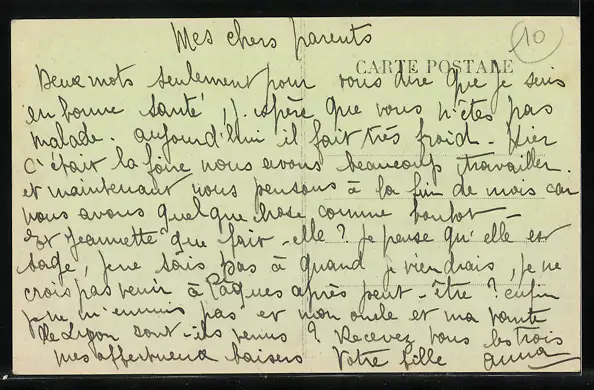 Mes chers parents
10
CARTE POSTALE
Deux mots seulement pour vous dire que je suis
en bonne santé, j. espère que vous n'êtes pas
malade. aujourd'hui il fait très froid. Hier
c'était la foire nous avons beaucoup travailler.
et maintenant nous pensons à la fin de mois car
nous avons quelque chose comme
Et Jeannette que fait-elle? je pense qu'elle est
sage, je ne sais pas à quand je viendrais, je ne
crois pas venir à Pâques après peut-être? enfin
je ne m'ennuis pas et mon oncle et ma tante
de Lyon sont-ils venus? Recevez vous les trois
mes affectueux baisers Votre fille anna